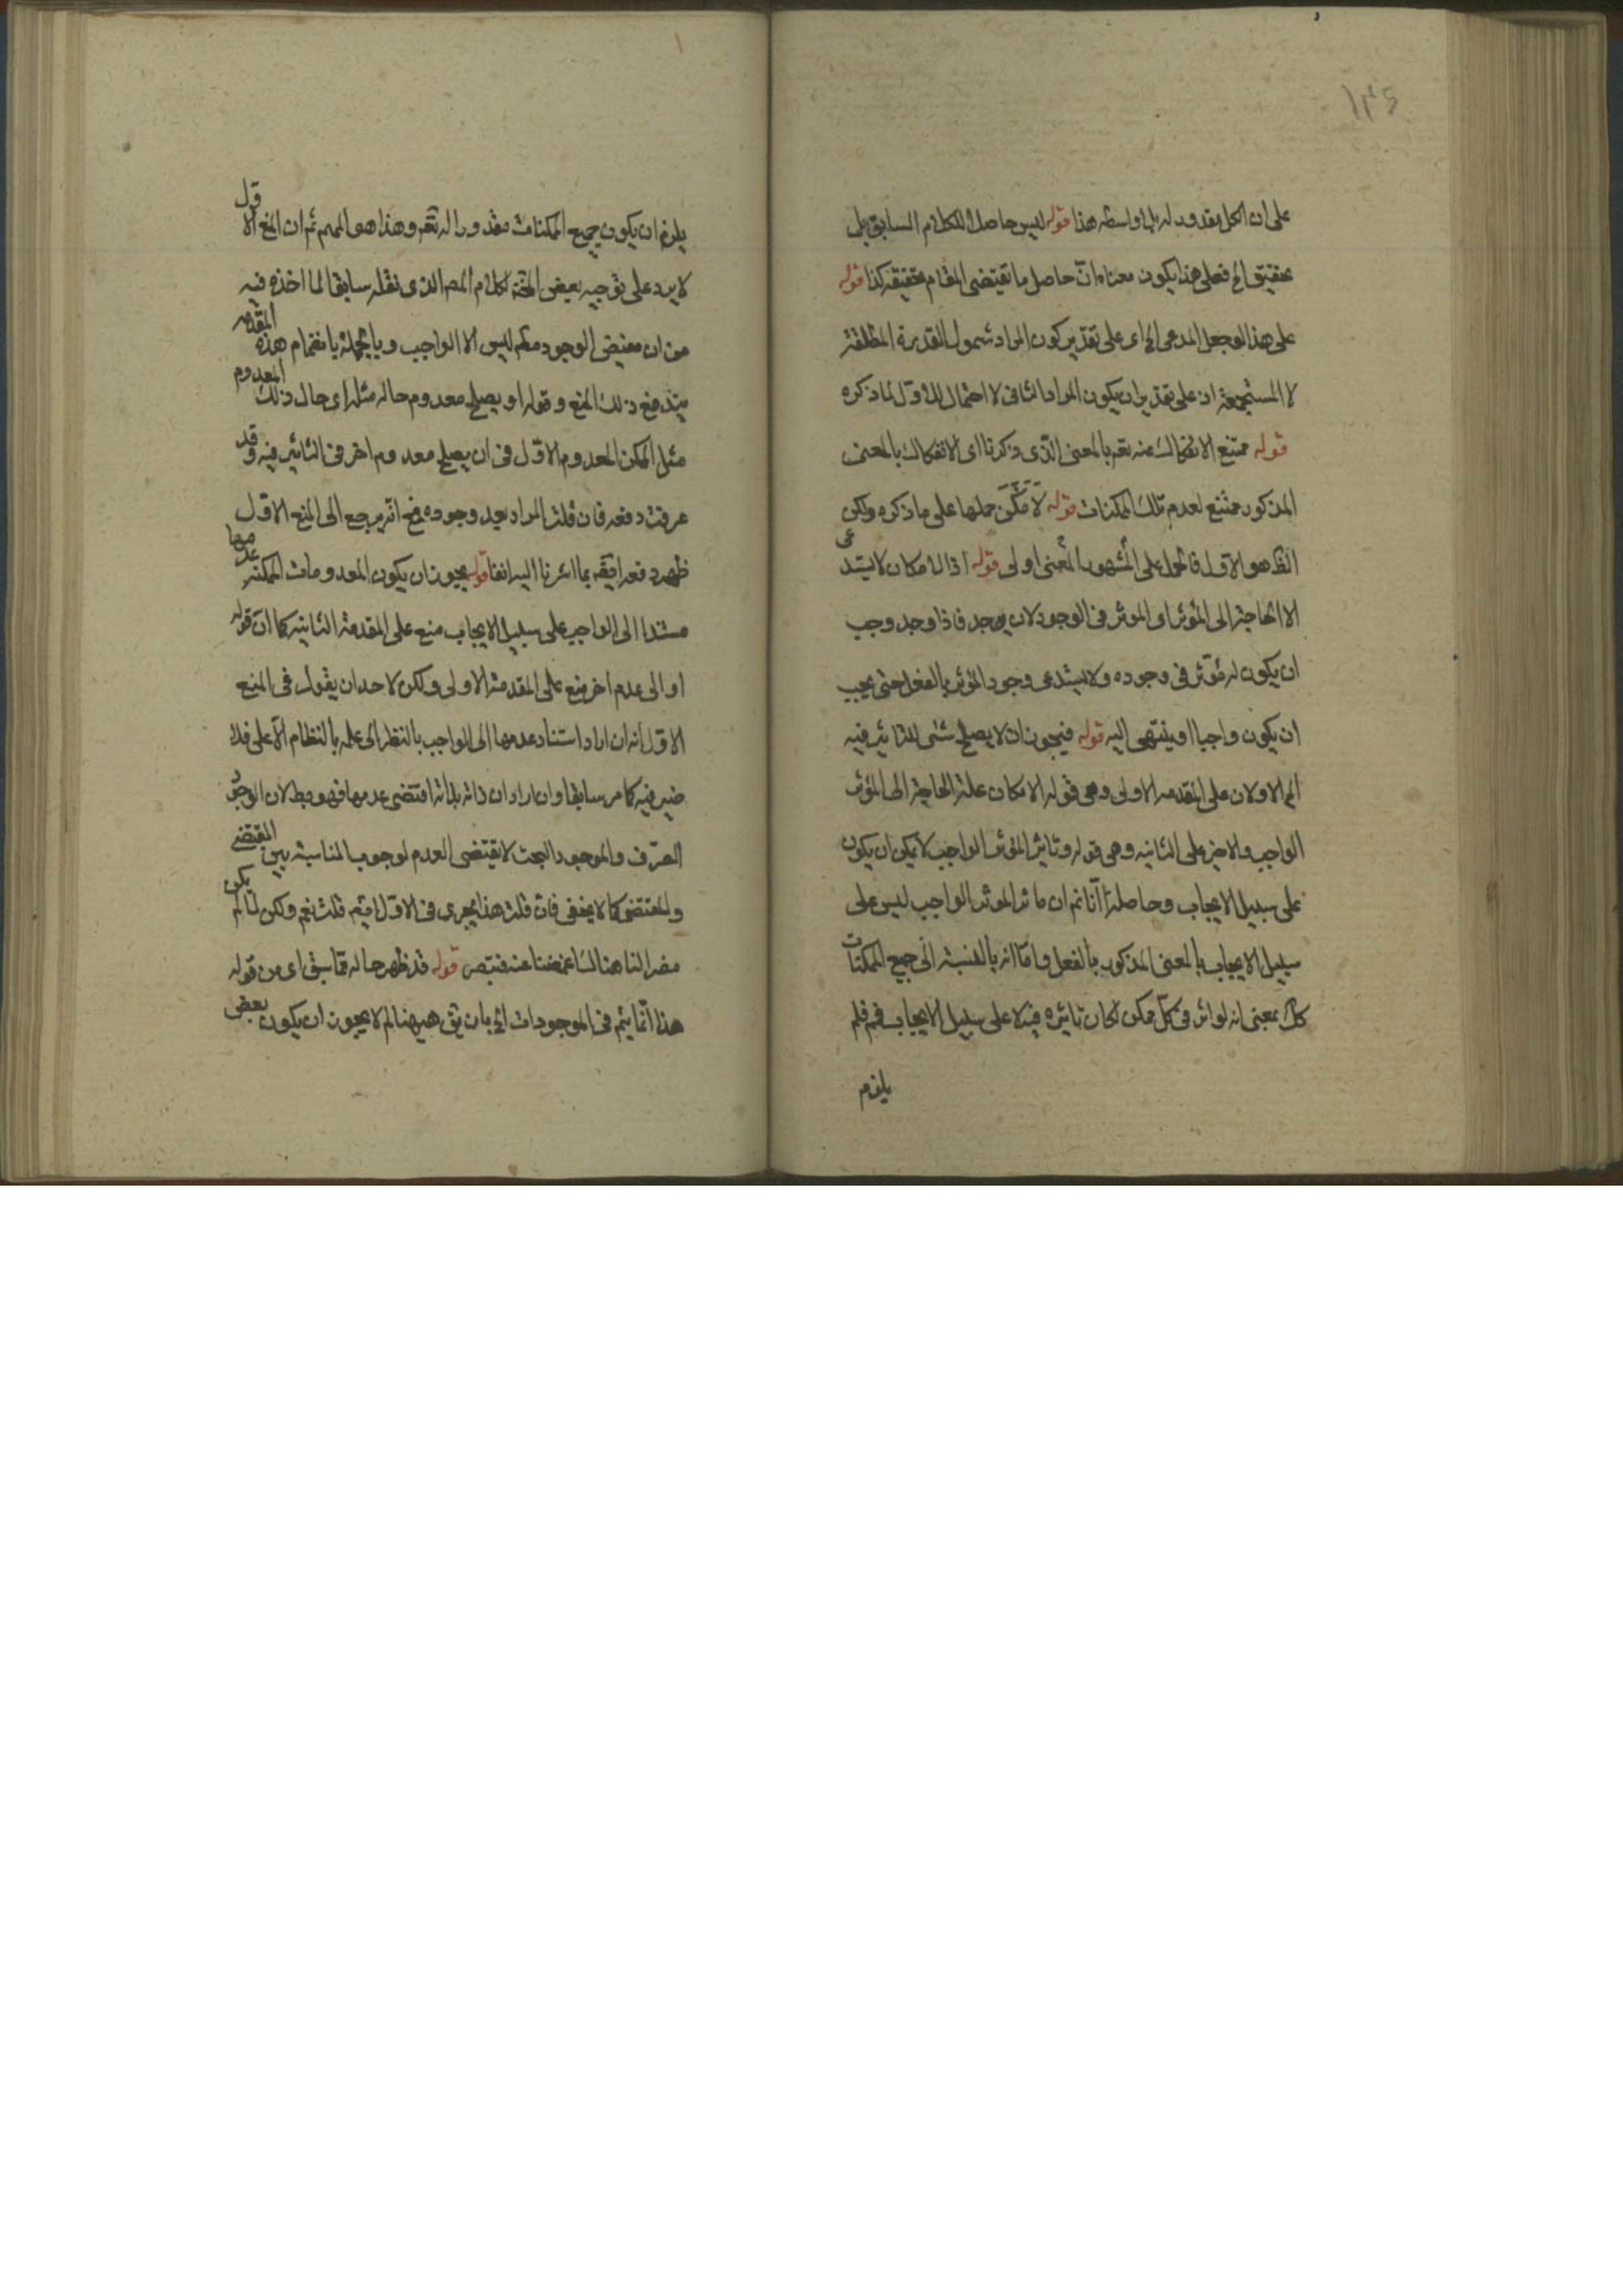 ١٣٤
على ان الكل مقدور له بلا واسطه هذا قوله ليس حاصلا للكلام السابق بل
تحقيق الخ فعلى هذا يكون معناه انّ حاصل ما تقيتضى المقام تحقيقه كذا قوله
على هذا لو جعل المدعى الخ اى على تقدير كون المراد شمول القدرة المطلقة
لا المستجمعة اذ على تقدير ان يكون المراد الثانى لا احتمال للاوّل لما ذكره
قوله ممتنع الانفكاك عنه تعم بالمعنى الذّى ذكرنا اى الانفكاك بالمعنى
المذكور ممتنع لعدم تلك الممكنات قوله لا مكن حملها على ما ذكره ولكن
الظ هو الاول فالحمل على المشهور المعنى اولى قوله اذ الامكان لا يستدعى
الا الحاجة الى المؤثر اى الموثر فى الوجود لان يوجد فاذا وجد وجب
ان يكون له مؤثر فى وجوده ولا يستدعى وجود المؤثر بالفعل حتى يجب
ان يكون واجبا او ينتهى اليه قوله فيجوز ان لا يصلح شئى للتاثير فيه
الخ الاولان على المقدمه الاولى وهى قوله الامكان علة الحاجة الى المؤثر
الواجب والاخير على الثانيه وهى قوله وتاثير المؤثر الواجب لا يمكن ان يكون
على سبيل الايجاب وحاصله انّا نم ان تاثر الموثر الواجب ليس على
سبيل الايجاب بالمعنى المذكور بالفعل وامّا انه بالنسبة الى جميع الممكنات
كك بمعنى انه لو اثر فى كلّ ممكن لكان تاثيره فيه لا على سبيل الايجاب فمم فلم
يلزم
يلزم ان يكون جميع الممكنات مقدورا له تعم وهذا هو المهم ثم ان المنع الاول
لا يرد على توجيه بعض المحققة لكلام المص الذى نقله سابقا لما اخذه فيه
من ان مفيض الوجود مطم ليس الا الواجب وبالجملة بانضمام هذه المقدمه
يندفع ذلك المنع وقوله او يصلح معدوم حاله مثله اى حال ذلك المعدوم
مثل الممكن المعدوم الاوّل فى ان يصلح معدوم اخر فى التاثير فيه وقد
عرفت دفعه فان قلت المراد بعد وجوده فمع انّه يرجع الى المنع الاوّل
ظهر دفعه ايضم بما اشرنا اليه انفا قوله يجوز ان يكون المعدومات الممكنه عدمها
مستندا الى الواجب على سبيل الايجاب منع على المقدمة الثانيه كما ان قوله
او الى عدم اخر منع على المقدمة الاولى ولكن لاحد ان يقول فى المنع
الاوّل انه ان اراد استناد عدمها الى الواجب بالنظر الى علمه بالنظام الاعلى فلا
ضير فيه كما مر سابقا وان اراد ان ذاته بذاته اقتضى عدمها فهو بط لان الوجود
الصّرف والموجود البحت لا يقتضى العدم لوجوب المناسبة بين المقتضى
والمقتضى كما لا يخفى فان قلت هذا يجرى فى الاوّل ايضم قلت نعم ولكن لما لم يكن
مضرا لنا هنالك اغمضنا عنه فتبصر قوله قد ظهر حاله ممّا سبق اى من قوله
هذا انّما يتم فى الموجودات الخ بان يق هيهنا لم لا يجوز ان يكون بعض